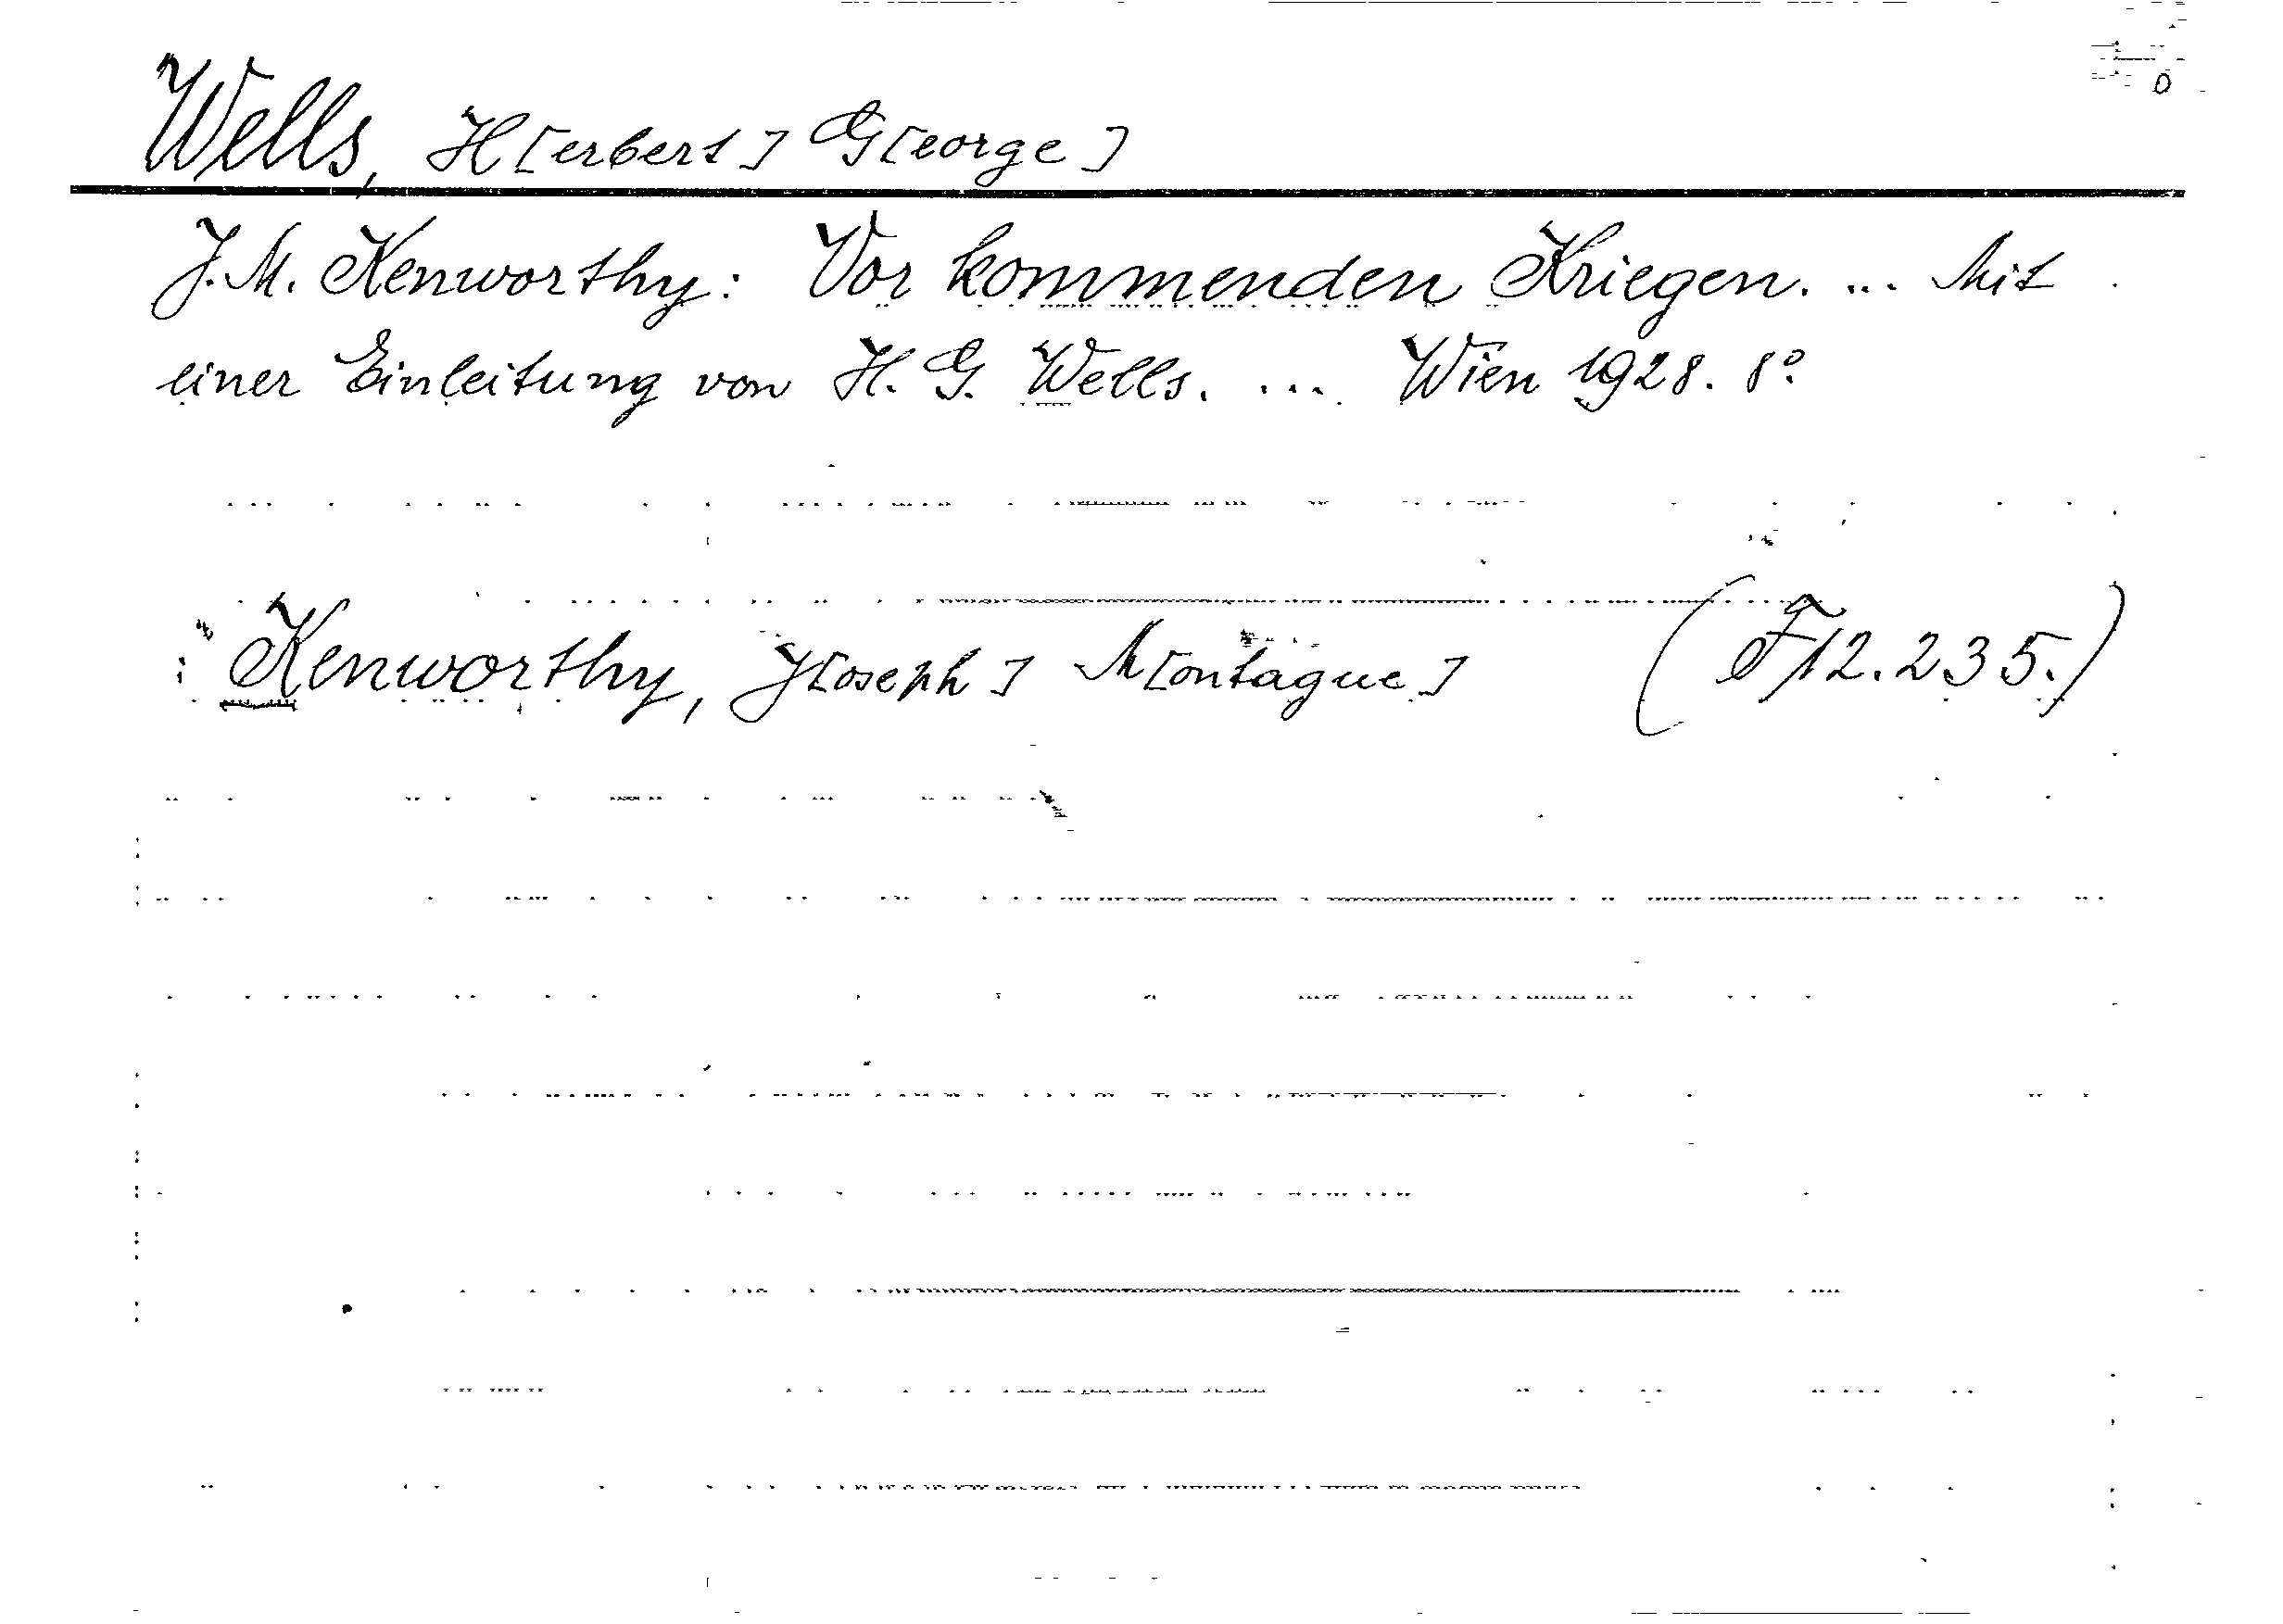 Wells, H[erbert] G[eorge]
J. M. Kenworthy: Vor kommenden Kriegen. ... Mit
einer Einleitung von H. G. Wells. ... Wien 1928. 8°
: Kenworthy, J[oseph] M[ontague] (F12.235.)